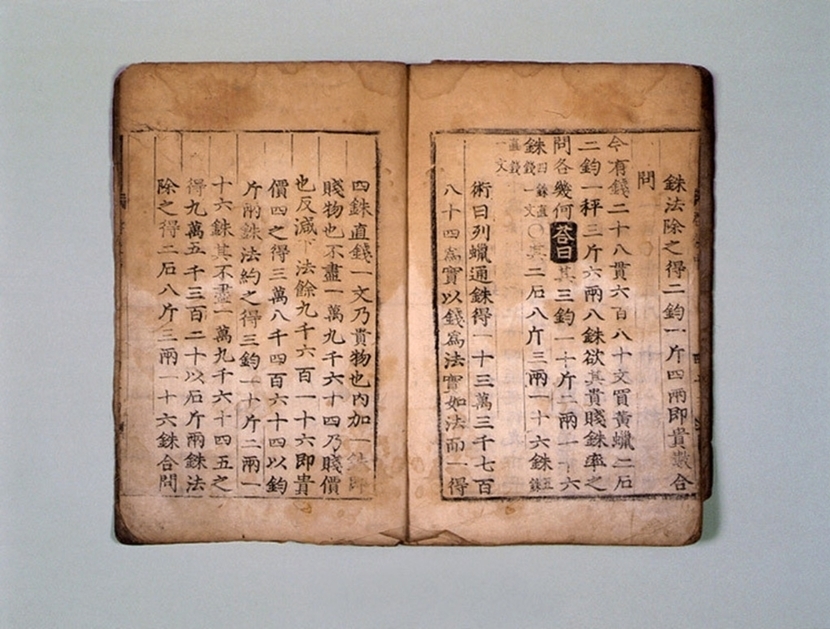 銖法除之得二鈞一斤四兩即貴數合
問
今有錢二十八貫六百八十文買黃蠟二石
二鈞一秤三斤六兩八銖欲其貴賤銖率之
問各幾何答曰其三鈞一十斤二兩一十六
銖四銖直錢一文〇其二石八斤三兩一十六銖五銖
直錢一文
術曰列蠟通銖得一十三萬三千七百
八十四爲實以錢爲法實如法而一得
四銖直錢一文乃貴物也內加一銖即
賤物也不盡一萬九千六十四乃賤價
也反減下法餘九千六百一十六即貴
價四之得三萬八千四百六十四以鈞
斤兩銖法約之得三鈞一十斤二兩一
十六銖其不盡一萬九千六十四五之
得九萬五千三百二十以石斤兩銖法
除之得二石八斤三兩一十六銖合問